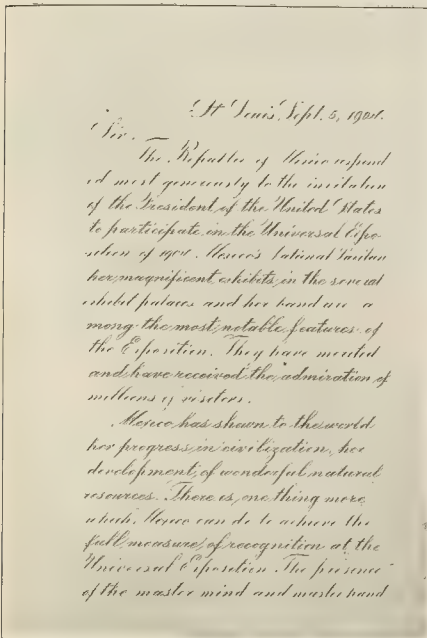 St Louis, Sept. 5, 1904.
Sir. —
The Republic of Mexico respond
ed most generously to the invitation
of the President of the United States
to participate in the Universal Expo-
sition of 1904. Mexico's National Pavilion
her magnificent exhibits in the several
exhibit palaces and her band are a
mong the most notable features of
the Exposition. They have merited
and have received the admiration of
millions of visitors.
Mexico has shown to the world
her progress in civilization, her
development of wonderful natural
resources. There is one thing more
which Mexico can do to achieve the
full measure of recognition at the
Universal Exposition. The presence
of the master mind and master hand